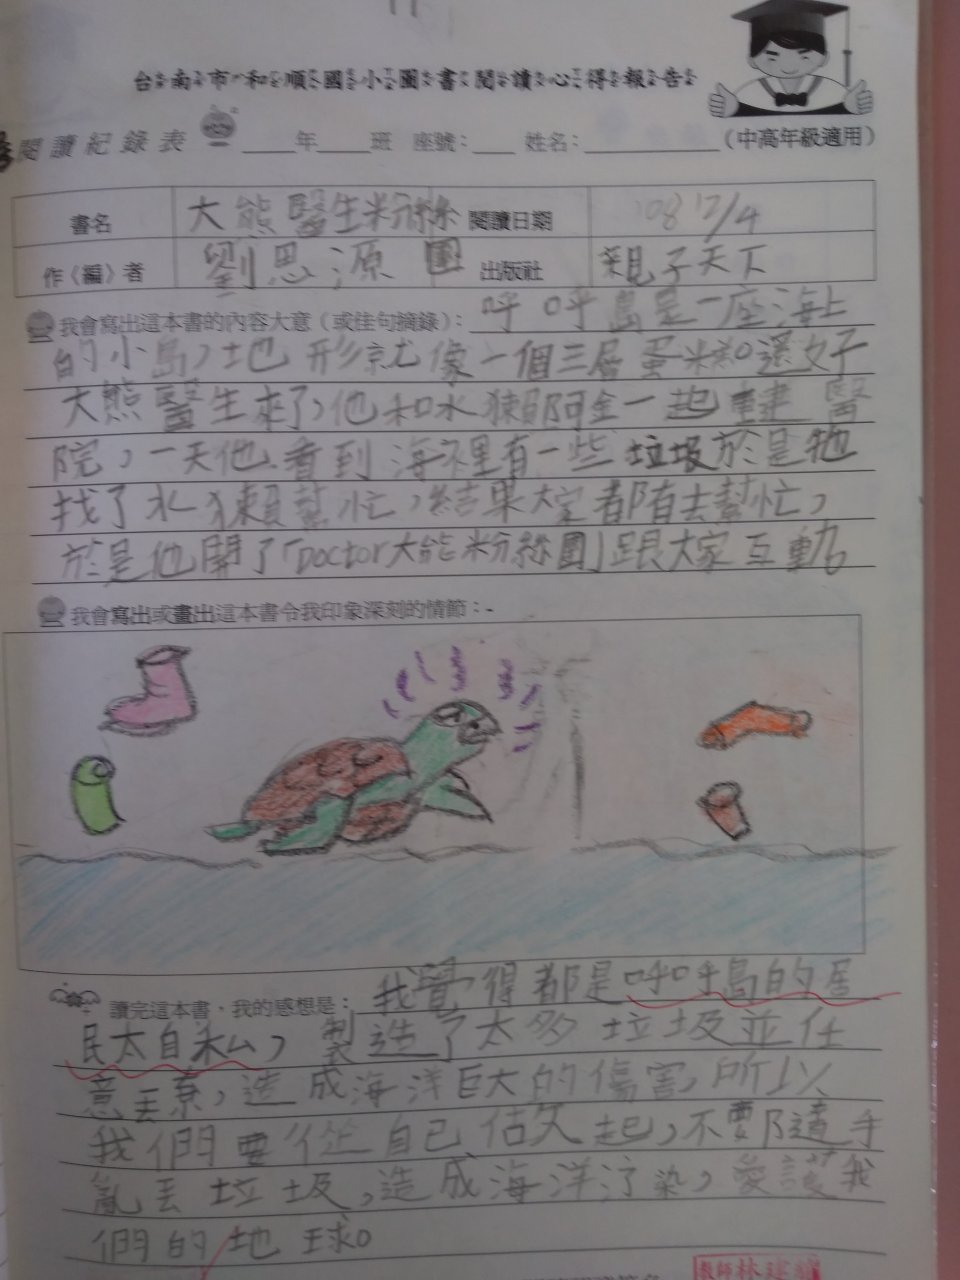 台南市和順國小圖書閱讀心得報告
閱讀紀錄表 ____年____班 座號：___ 姓名：__________（中高年級適用）
書名 大熊醫生粉絲團 閱讀日期 108 12/4
作（編）者 劉思源 出版社 親子天下
我會寫出這本書的內容大意（或佳句摘錄）：呼呼島是一座海上
的小島，地形就像一個三層蛋糕，還好
大熊醫生來了，他和水獺阿金一起建醫
院，一天他看到海裡有一些垃圾於是牠
找了水獺幫忙，結果大家都有去幫忙，
於是他開了「Doctor大熊粉絲團」跟大家互動
我會寫出或畫出這本書令我印象深刻的情節：
讀完這本書，我的感想是：我覺得都是呼呼島的居
民太自私，製造了太多垃圾並任
意丟棄，造成海洋巨大的傷害，所以
我們要從自己做起，不要隨手
亂丟垃圾，造成海洋汙染，愛護我
們的地球。
教師林建